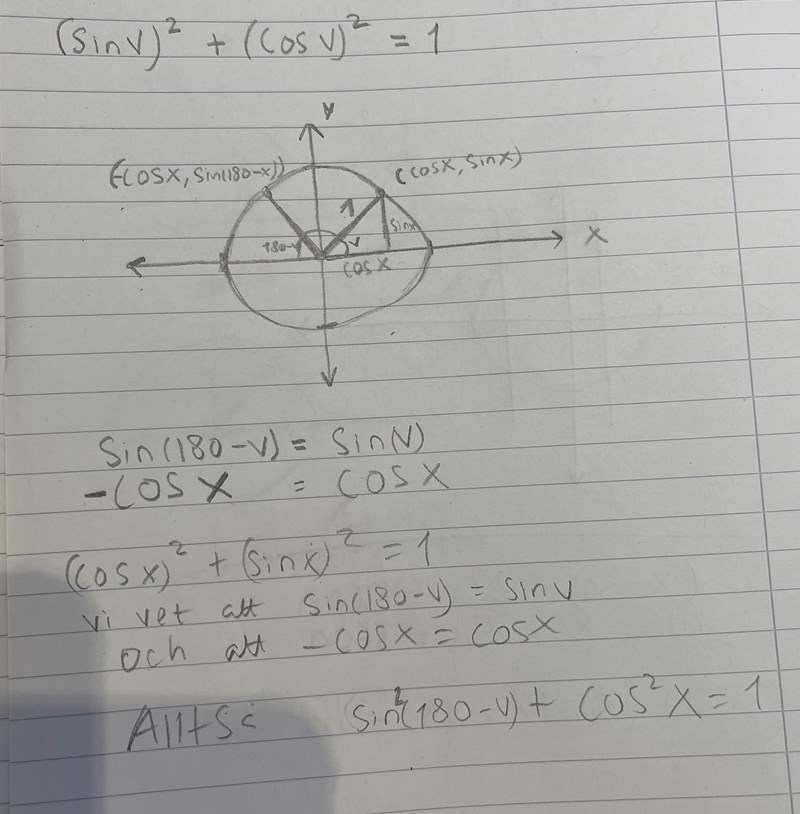 (sin v)² + (cos v)² = 1
y
(-cos x, sin(180-x))
(cos x, sin x)
1
sin x
180-v
v
x
cos x
Sin(180-v) = Sin(v)
-cos x = cos x
(cos x)² + (sin x)² = 1
vi vet att sin(180-v) = sin v
och att -cos x = cos x
Alltså sin²(180-v) + cos² x = 1